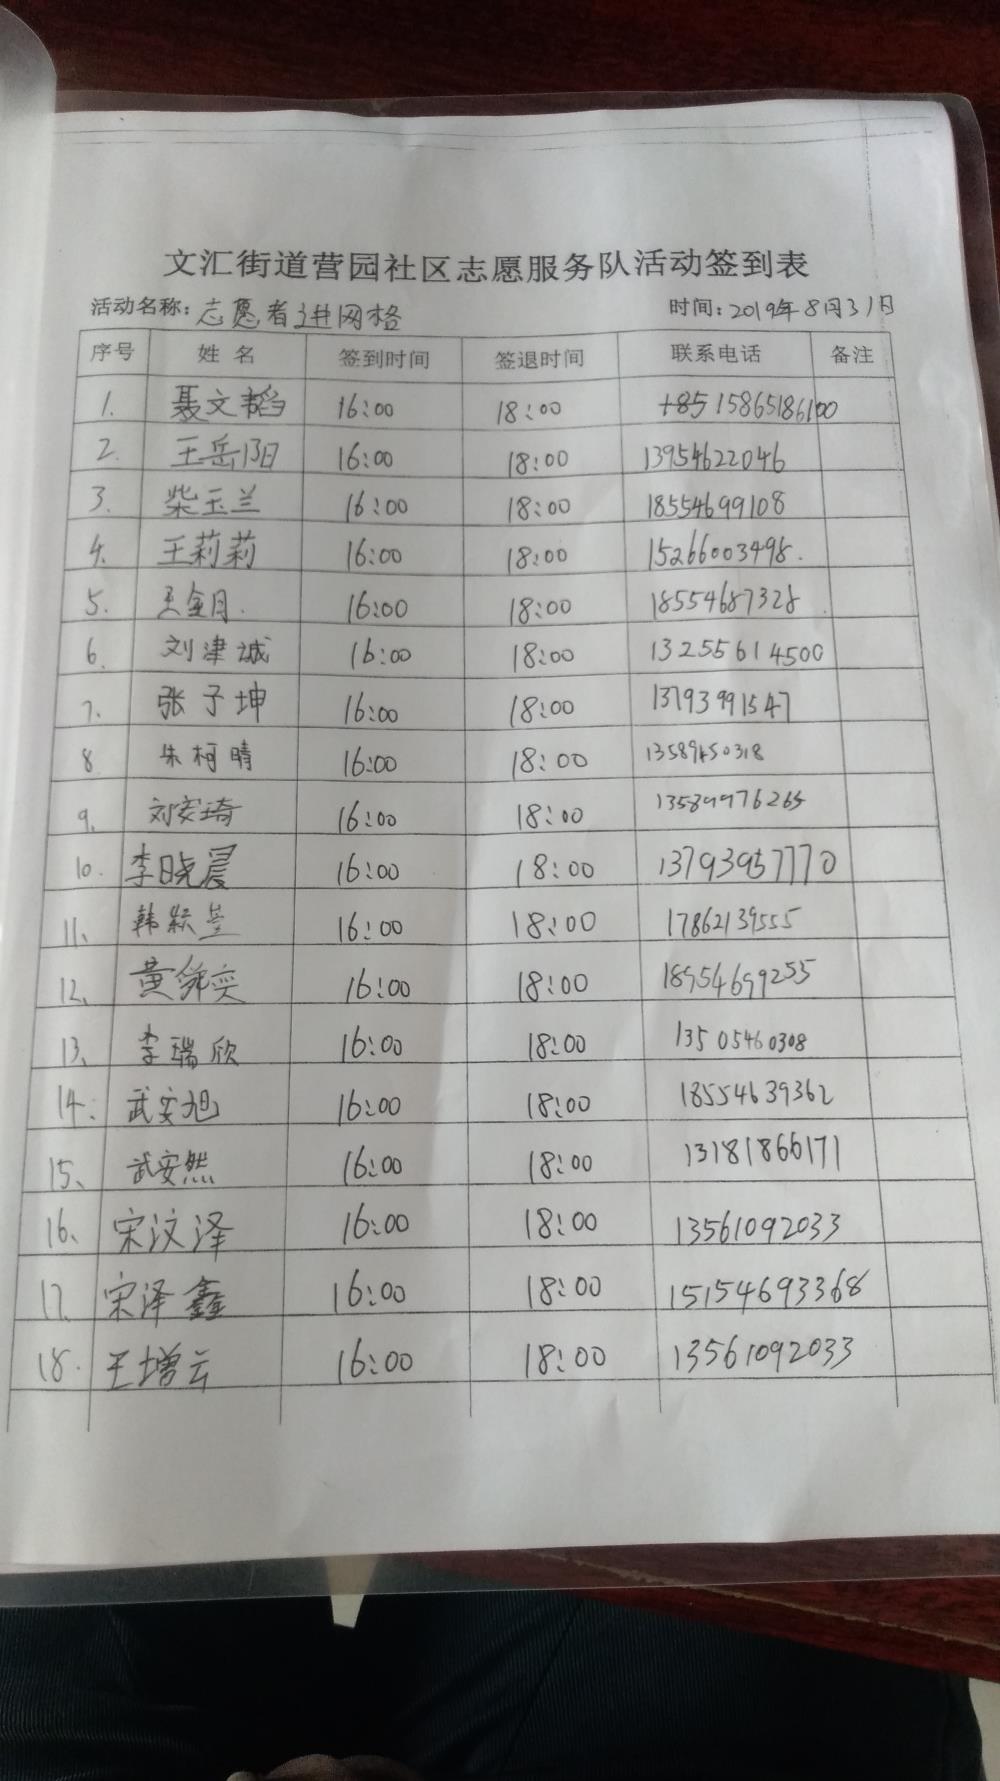 文汇街道营园社区志愿服务队活动签到表
活动名称：志愿者进网格 时间：2019年8月31日
序号 姓名 签到时间 签退时间 联系电话 备注
1. 聂文韬 16:00 18:00 +85 15865186100
2. 王岳阳 16:00 18:00 13954622046
3. 柴玉兰 16:00 18:00 18554699108
4. 王莉莉 16:00 18:00 15266003498.
5. 王金月. 16:00 18:00 18554687328
6. 刘津诚 16:00 18:00 13255614500
7. 张子坤 16:00 18:00 13793991547
8. 朱柯晴 16:00 18:00
9. 刘安琦 16:00 18:00 13589976265
10. 李晓晨 16:00 18:00 13793957770
11、韩 16:00 18:00 17862139555
12、黄舜奕 16:00 18:00 18954699255
13、李瑞欣 16:00 18:00 13505460308
14. 武安旭 16:00 18:00 18554639362
15、武安然 16:00 18:00 13181866171
16、宋汶泽 16:00 18:00 13561092033
17. 宋泽鑫 16:00 18:00 15154693368
18. 王增云 16:00 18:00 13561092033